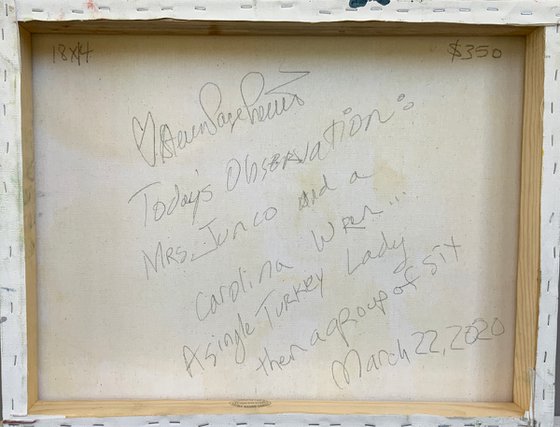 18x14
$350
Steven Page Prewitt
Today's Observation:
Mrs. Junco and a
Carolina Wren...
A single Turkey Lady
then a group of Six
March 22, 2020